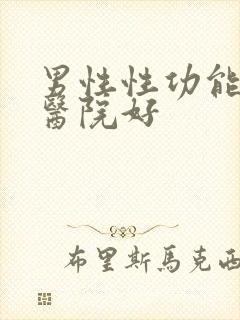 男性性功能
醫院好
布里斯馬克西